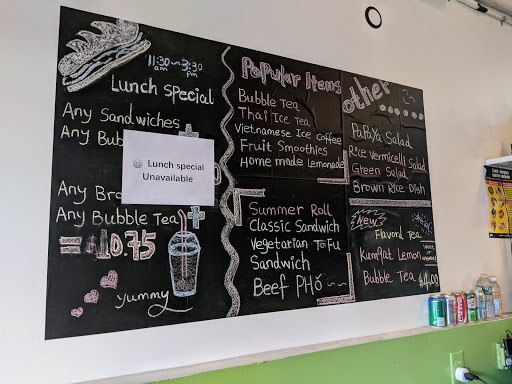 11:30~3:30
am pm
Lunch Special
Any Sandwiches
+
Any Bub
Lunch special
Unavailable
Any Bro
+
Any Bubble Tea
= $10.75
yummy
Popular Items
Bubble Tea
Thai Ice Tea
Vietnamese Ice coffee
Fruit Smoothies
Home made Lemonade
Summer Roll
Classic Sandwich
Vegetarian ToFu
Sandwich
Beef PHỞ
other
PaPaYa Salad
Rice Vermicelli Salad
Green Salad
Brown Rice Dish
New
Flavord Tea
Kumqat Lemon
Bubble Tea $4.00